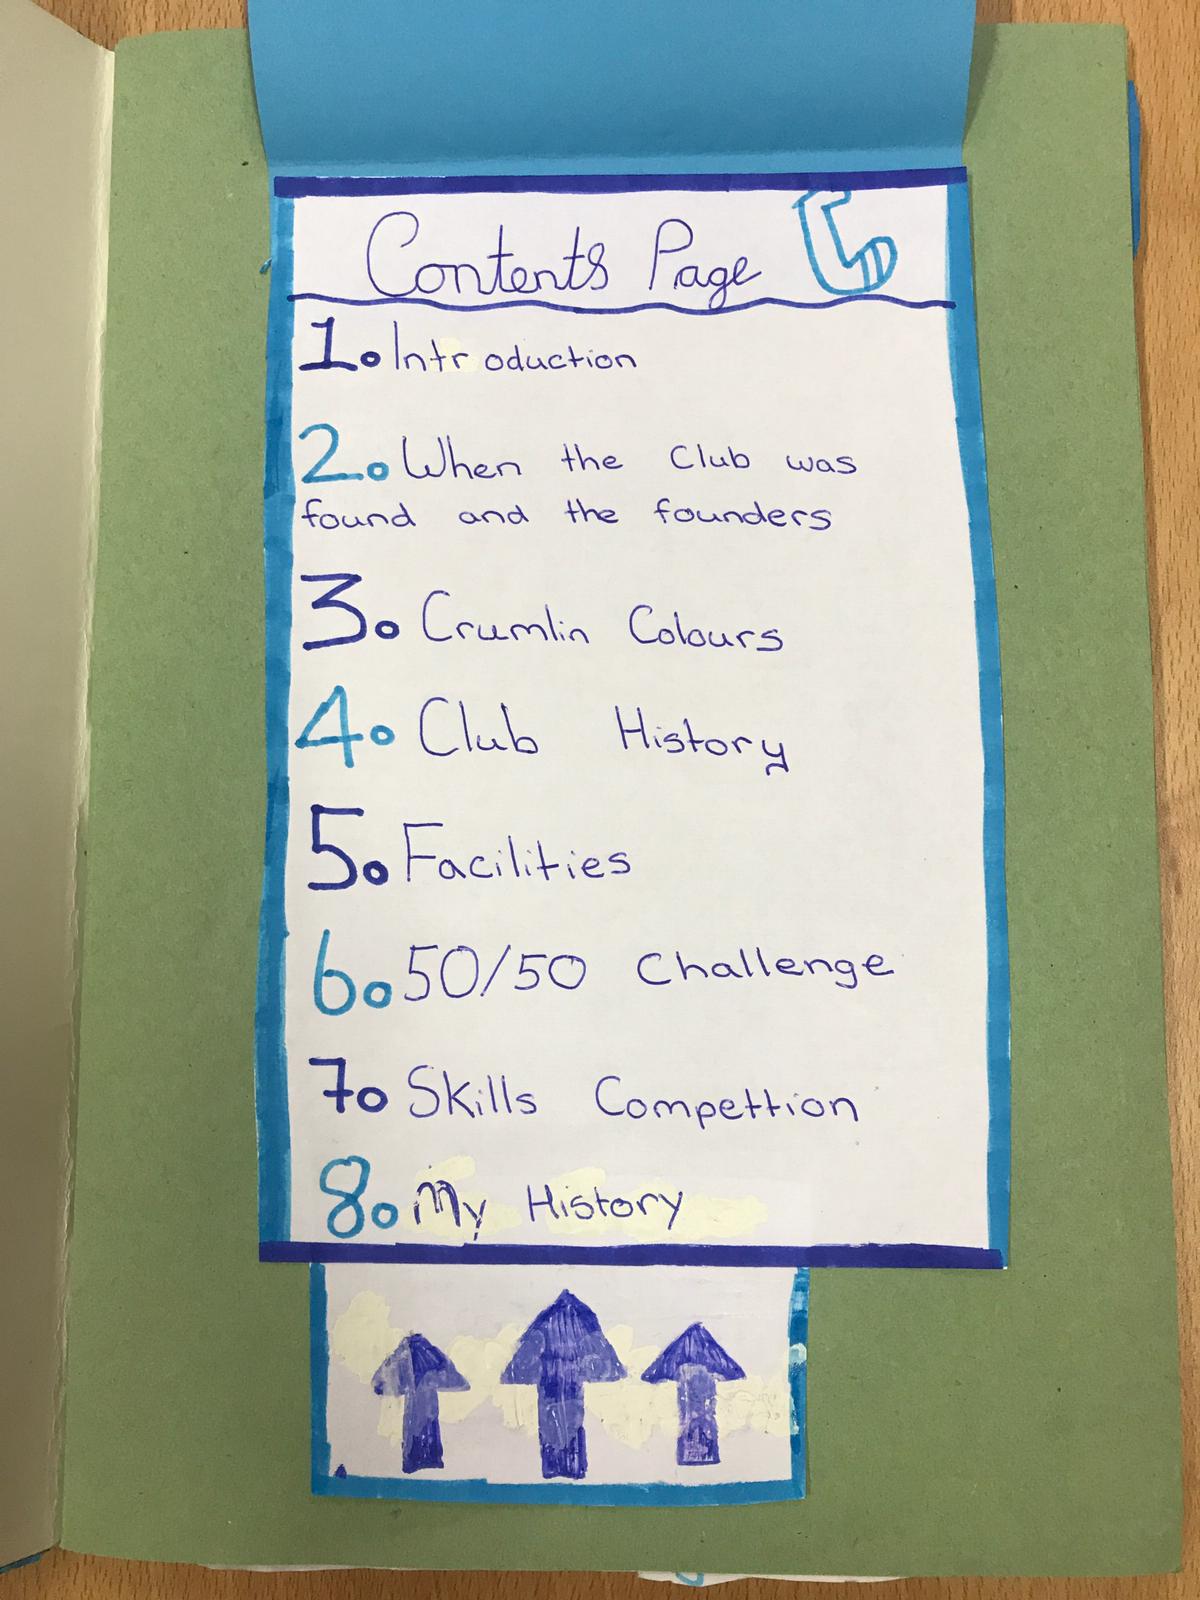 Contents Page
1. Introduction
2. When the Club was
found and the founders
3. Crumlin Colours
4. Club History
5. Facilities
6. 50/50 Challenge
7. Skills Compettion
8. My History